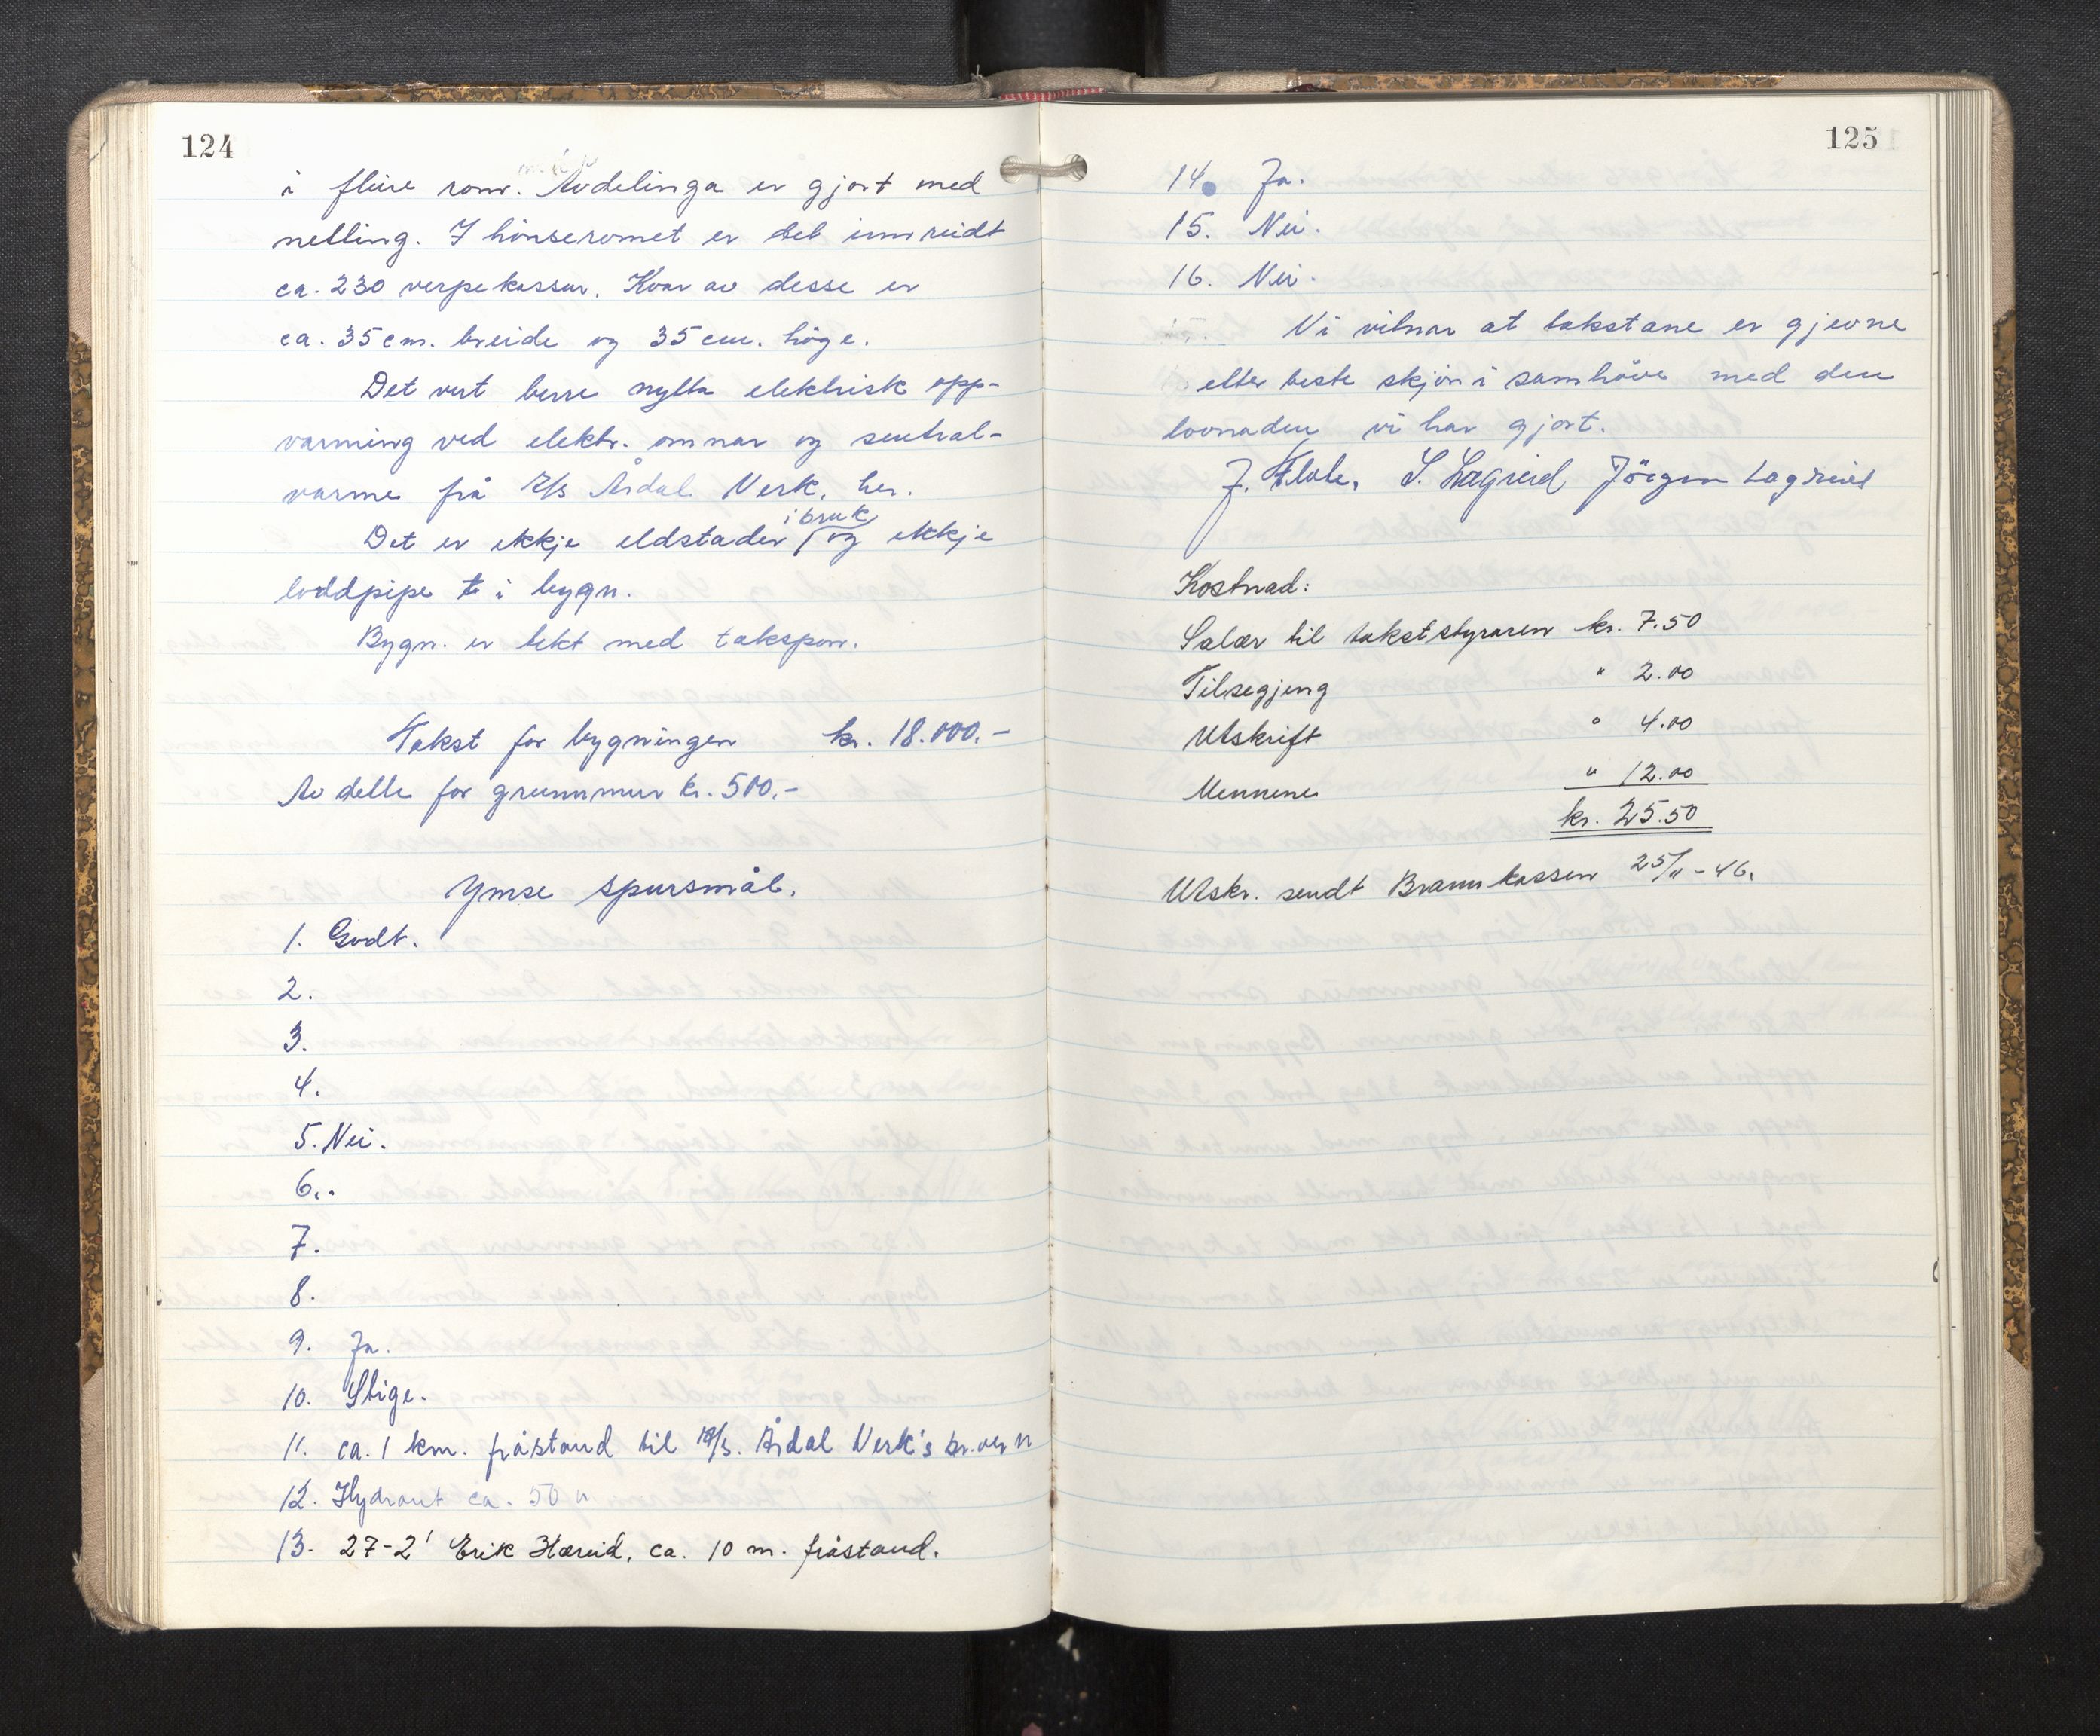 124
i fleire rom. Avdelinga er gjort med
netting. I hönseromet er det innreidt
ca. 230 verpekassar. Kvar av desse er
ca. 35 cm. breide og 35 cm. höge.
Det vert berre nytta elektrisk opp-
varming ved elektr. omnar og sentral-
varme frå A/S Årdal Verk, her.
i bruk
Det er ekkje eldstader og ekkje
loddpipe i bygn.
Bygn. er tekt med takspon.
Takst for bygningen kr. 18.000.-
Av dette for grunnmur kr. 500.-
Ymse spursmål.
1. Godt.
2.
3.
4.
5. Nei.
6..
7.
8.
9. Ja.
10. Stige.
11. ca. 1 km. fråstand til A/S. Årdal Verk's br.vern
12. Hydrant ca. 50 m
13. 27-2' Erik Hæreid, ca. 10 m. fråstand.
125
14. Ja.
15. Nei.
16. Nei.
Vi vitnar at takstane er gjevne
etter beste skjön i samhöve med den
lovnaden vi har gjort.
J. Flote, S. Lægreid Jörgen Lægreid
Kostnad:
Salær til takststyraren kr. 7.50
Tilsegjeng " 2.00
Utskrift " 4.00
Mennene " 12.00
kr. 25.50
Utskr. sendt Brannkassen 25/11-46.